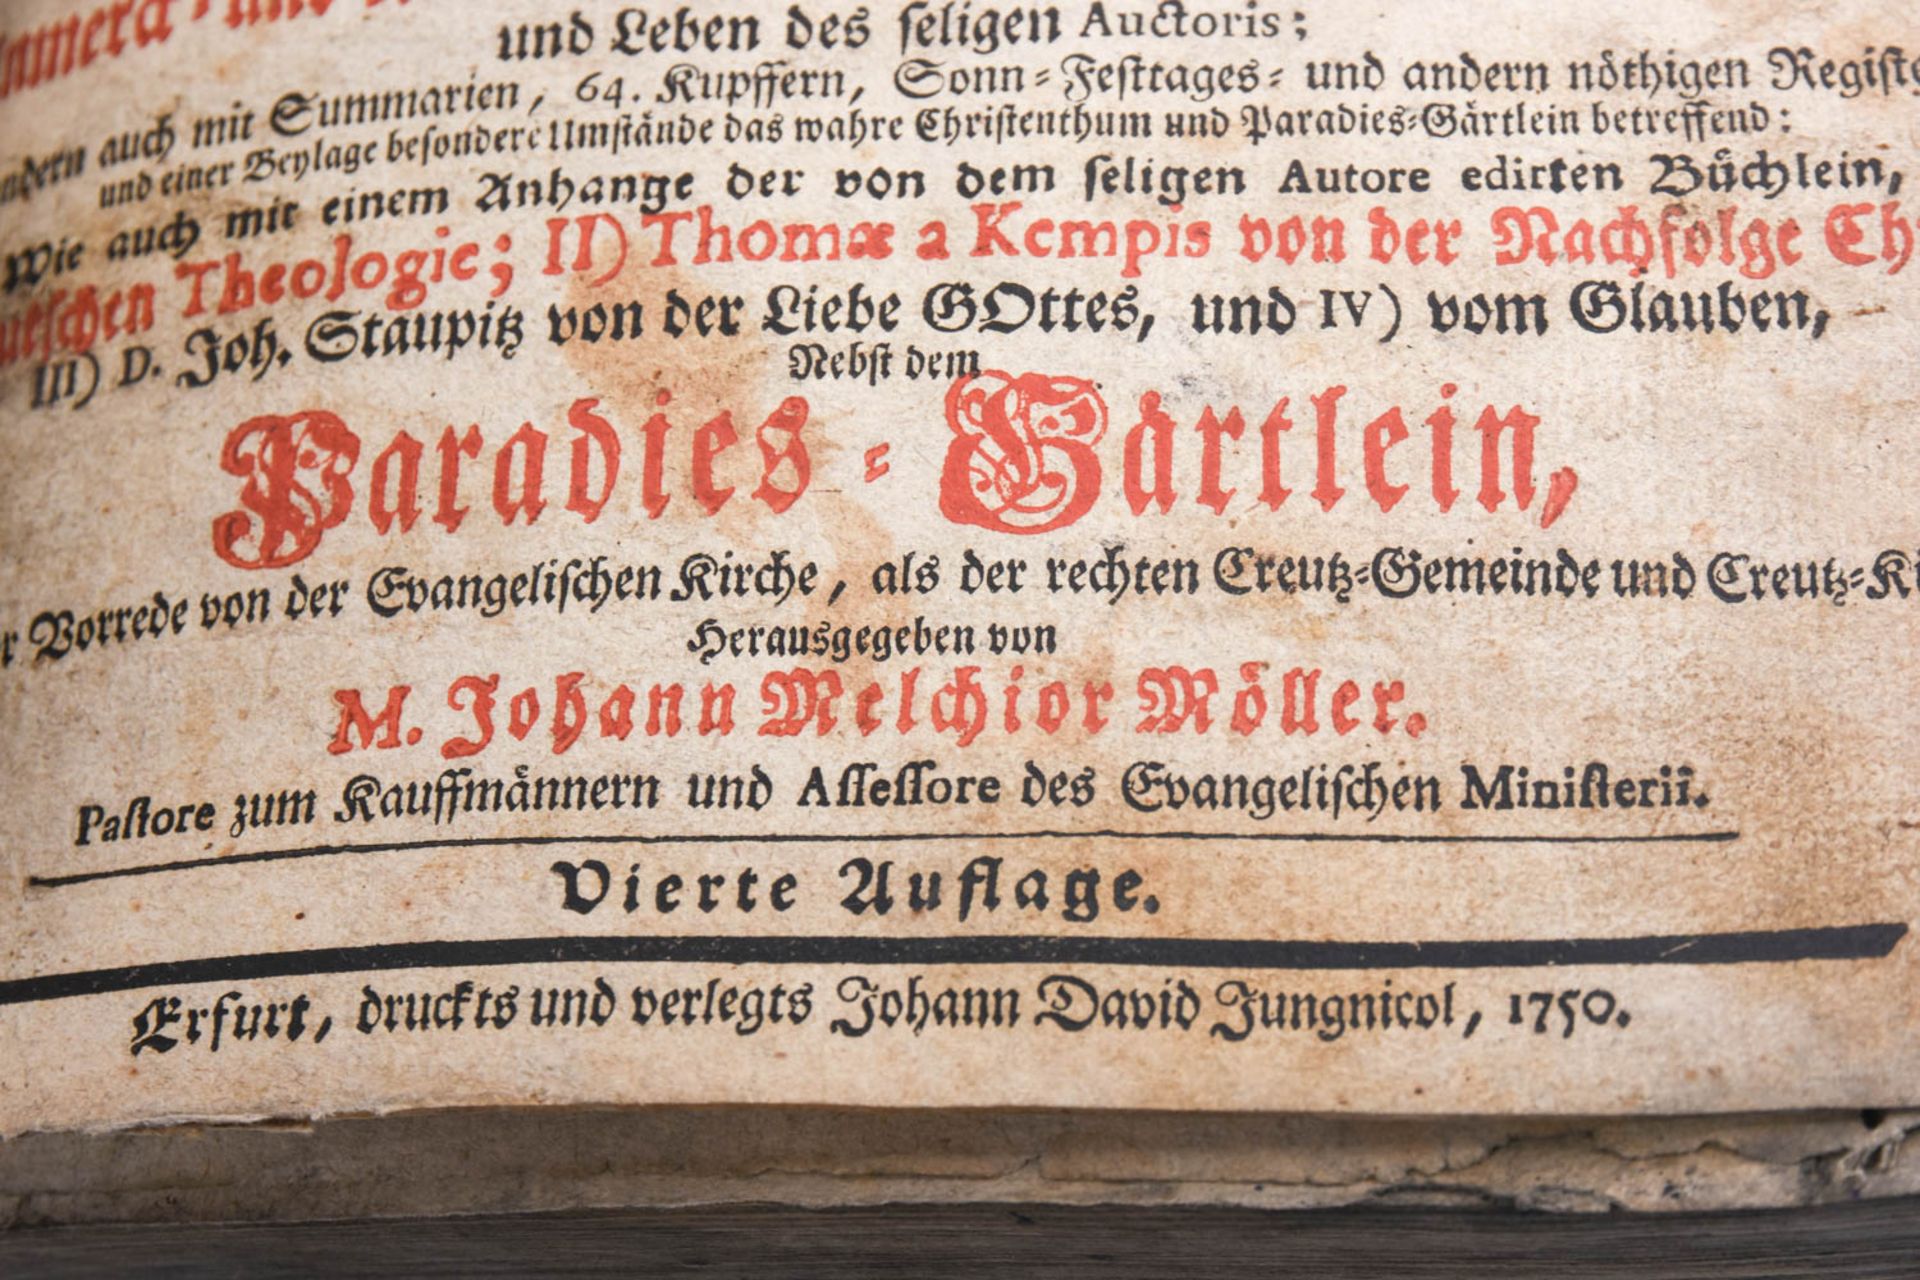 und Leben des seligen Auctoris;
auch mit Summarien, 64. Kupffern, Sonn-Festtages- und andern nöthigen
und einer Beylage besondere Umstände das wahre Christenthum und Paradies-Gärtlein betreffend:
Wie auch mit einem Anhange der von dem seligen Autore edirten Büchlein,
Theologie; II) Thomæ a Kempis von der Nachfolge
III) D. Joh. Staupitz von der Liebe GOttes, und IV) vom Glauben,
Nebst dem
Paradies-Gärtlein,
Vorrede von der Evangelischen Kirche, als der rechten Creutz-Gemeinde und Creutz-
Herausgegeben von
M. Johann Melchior Möller.
Pastore zum Kauffmännern und Assessore des Evangelischen Ministerii.
Vierte Auflage.
Erfurt, druckts und verlegts Johann David Jungnicol, 1750.